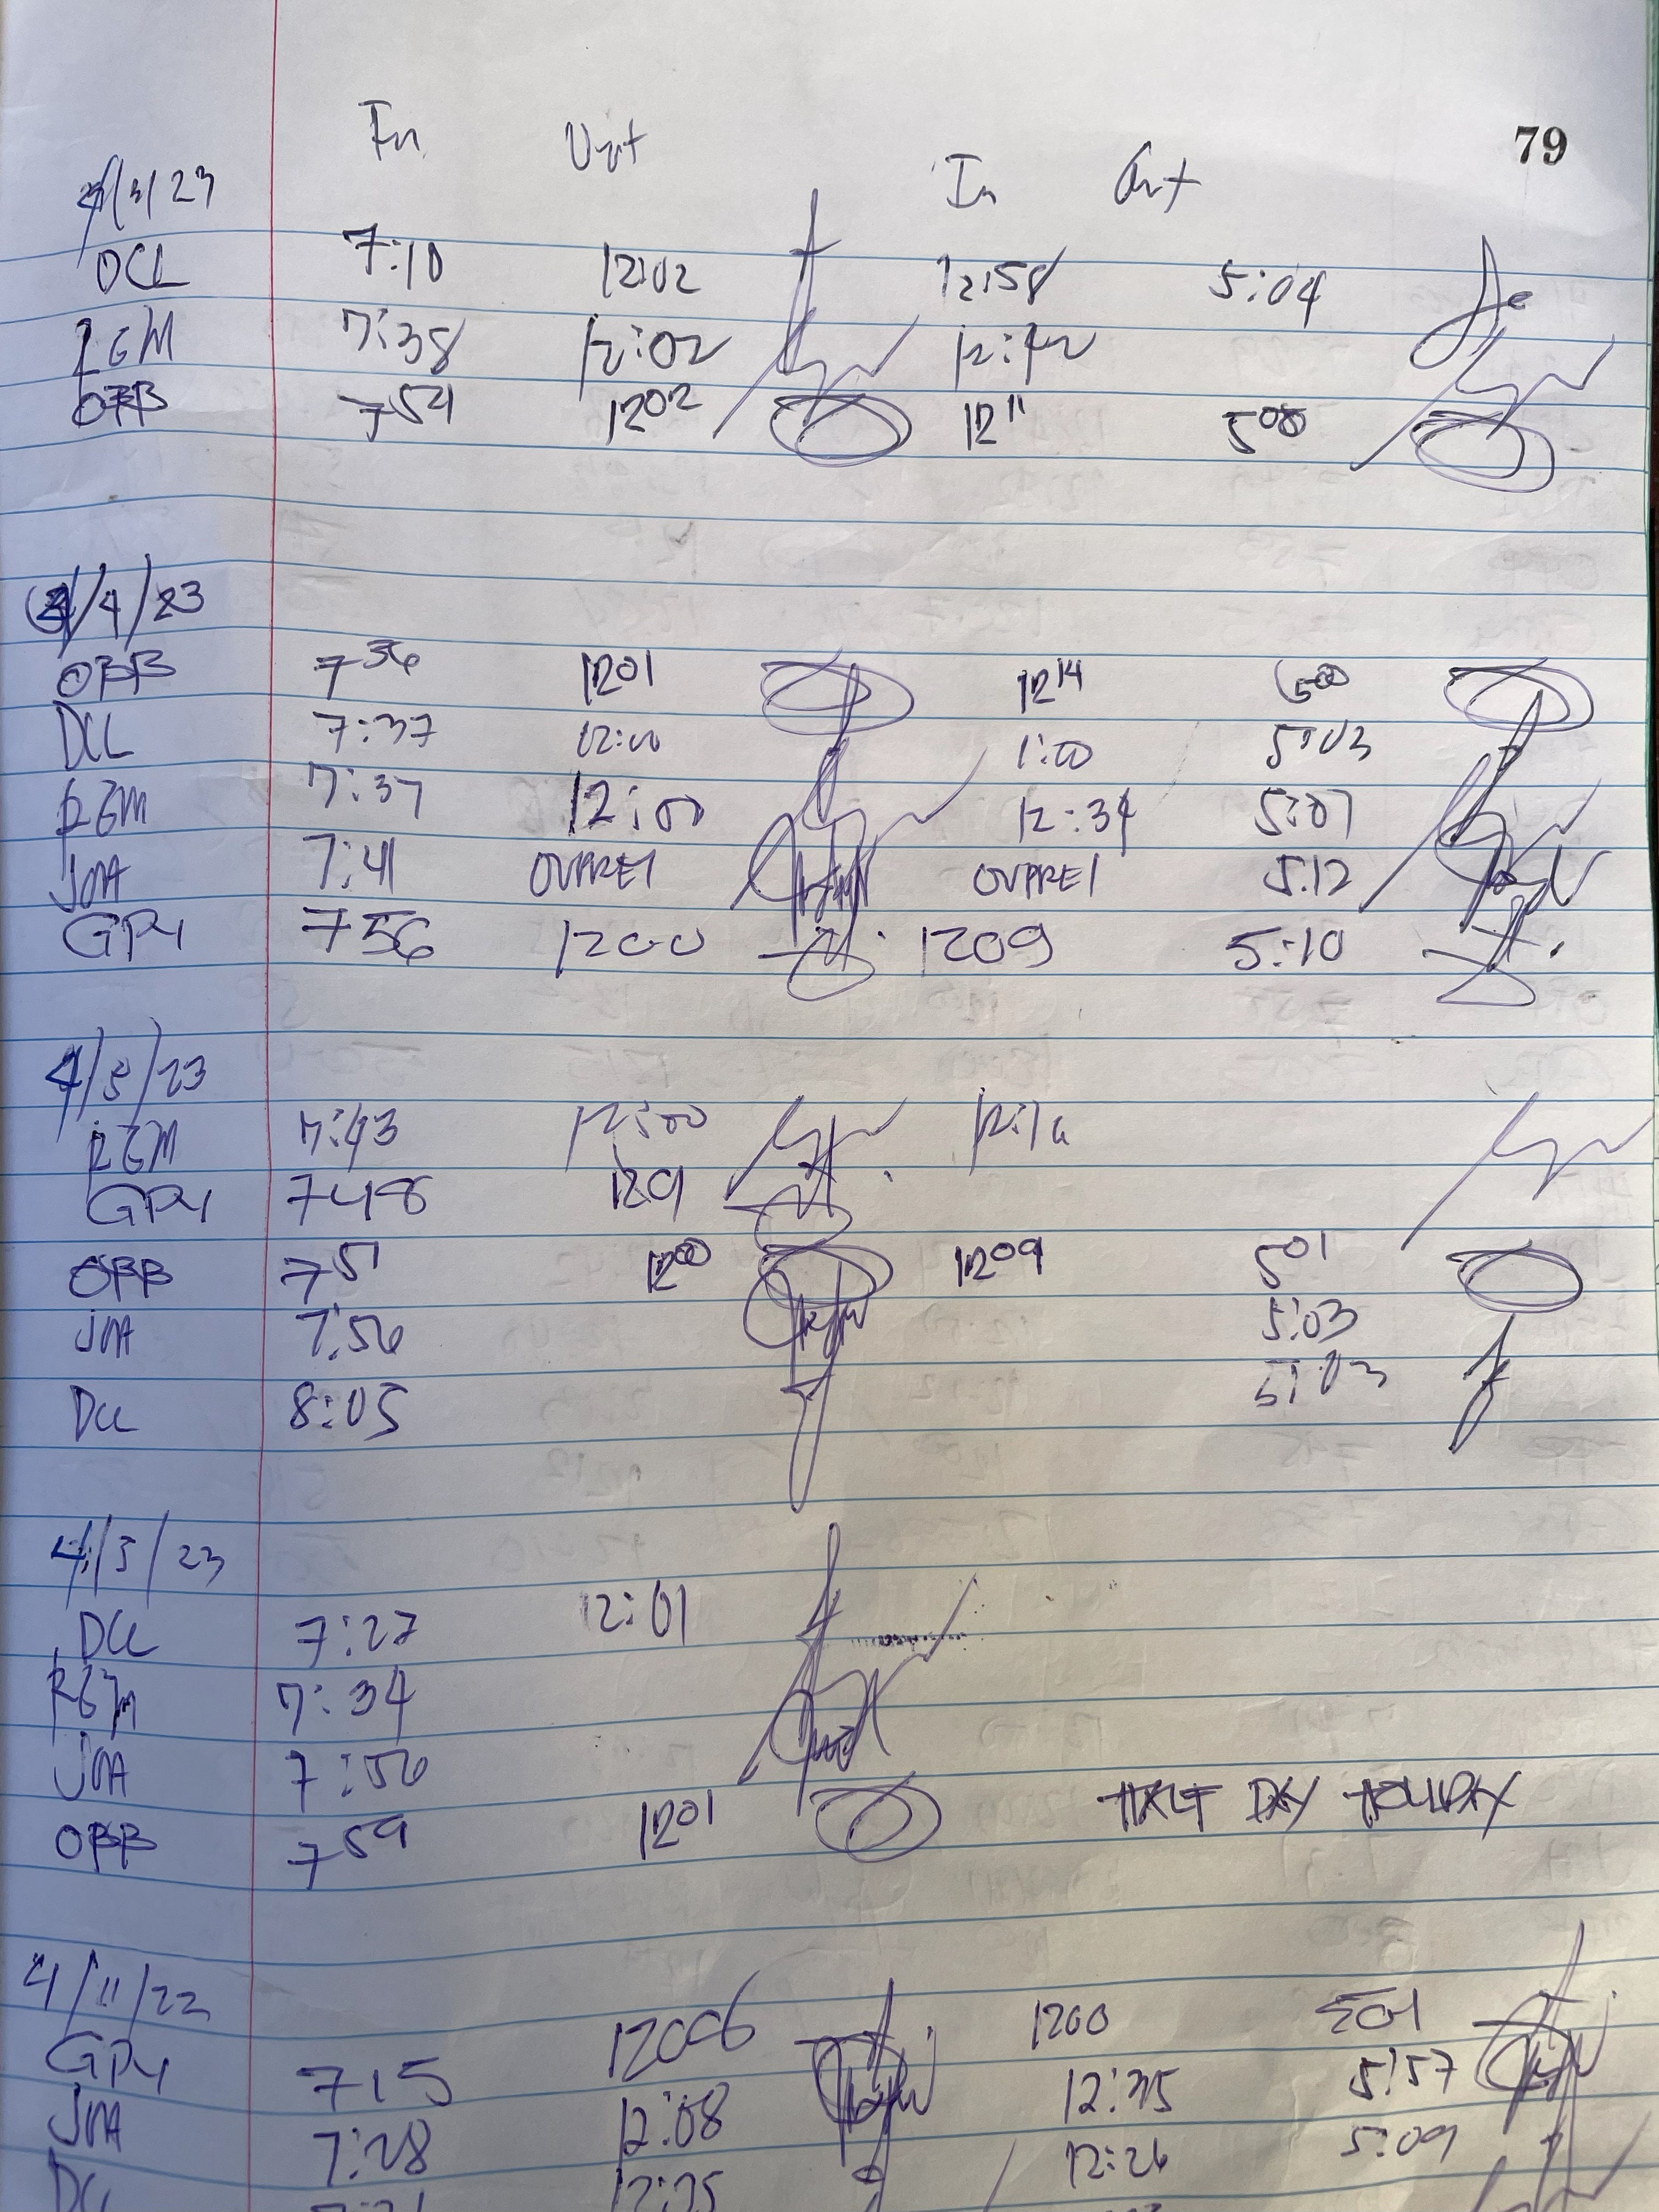 79
In Out In Out
/3/23
DCL 7:10 12:02 12:58 5:04
REM 7:38 12:02 12:42
OBB 7 54 12 02 12 11 5 00
/4/23
OBB 7 36 12 01 12 14 5 00
DCL 7:37 12:00 1:00 5:03
REM 7:37 12:00 12:34 5:07
JMA 7:41 OVPREI OVPREI 5:12
GPY 756 1200 1209 5:10
4/5/23
REM 7:43 12:00
GPY 748 1201
OBB 7 51 12 00 12 09 5 01
JMA 7:56 5:03
DCL 8:05 5:03
4/5/23
DCL 7:27 12:01
REM 7:34
JMA 7:56
OBB 7 59 12 01 HALF DAY HOLIDAY
4/11/23
GPY 715 1206 1200 501
JMA 7:28 12:08 12:35 5:57
DCL 12:26 5:09